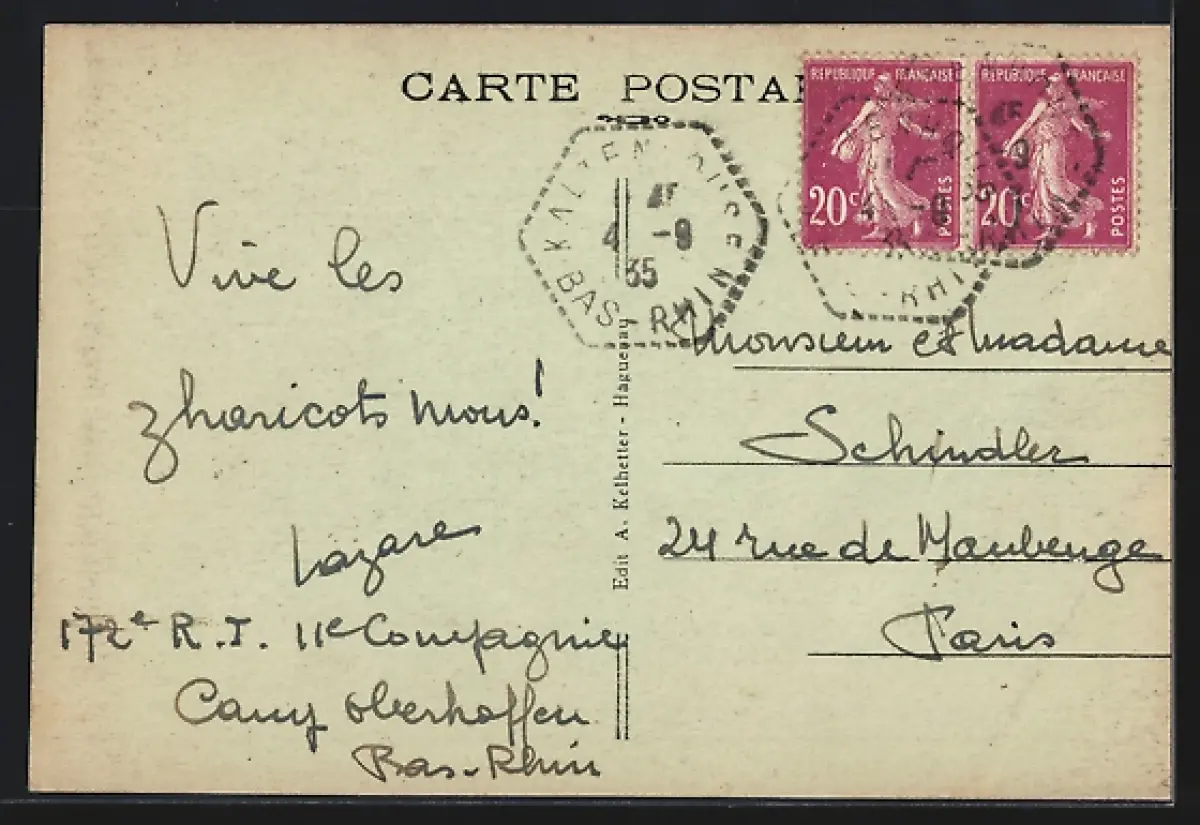 CARTE POSTA
RÉPUBLIQUE FRANÇAISE
20c
POSTES
RÉPUBLIQUE FRANÇAISE
20c
POSTES
KALTENHOUSE
4 -9
35
BAS-RHIN
Vive les
zharicots mous!
Lazare
172e R.I. 11e Compagnie
Camp Oberhoffen
Bas-Rhin
Edit A. Kelhetter - Haguenau
Monsieur et Madame
Schindler
24 rue de Maubeuge
Paris